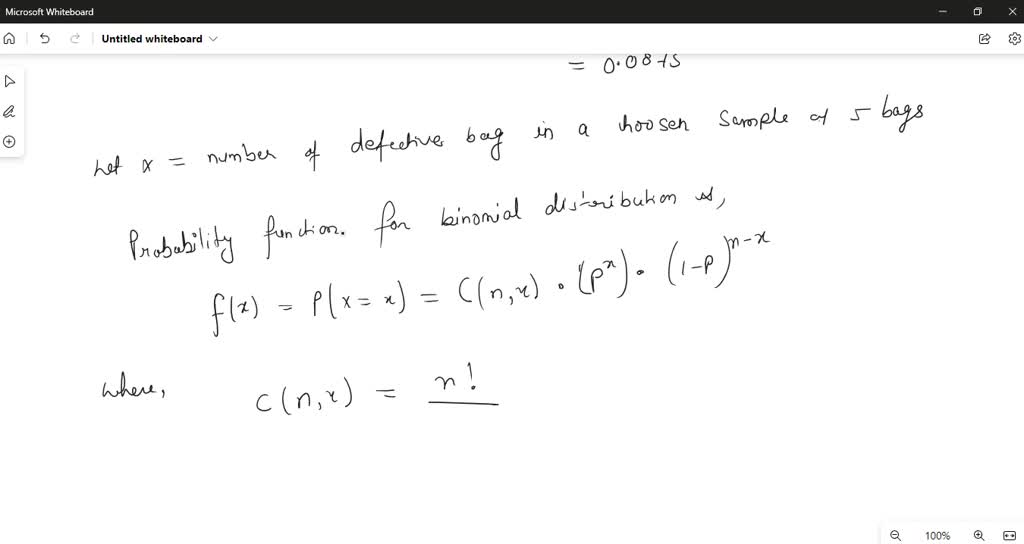 Microsoft Whiteboard
Untitled whiteboard
= 0.0875
Let x = number of defective bag in a hoosen sample of 5 bags
Probability function. for binomial distribution is,
f(x) = P(x = x) = C(n,x) . (p^x) . (1-p)^n-x
where, C(n,x) = n!
100%